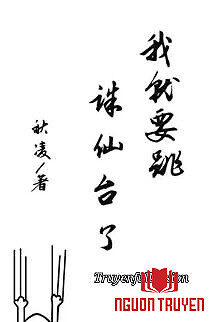 我就要跳
诛仙台了
秋凌/著
NGUON TRUYEN